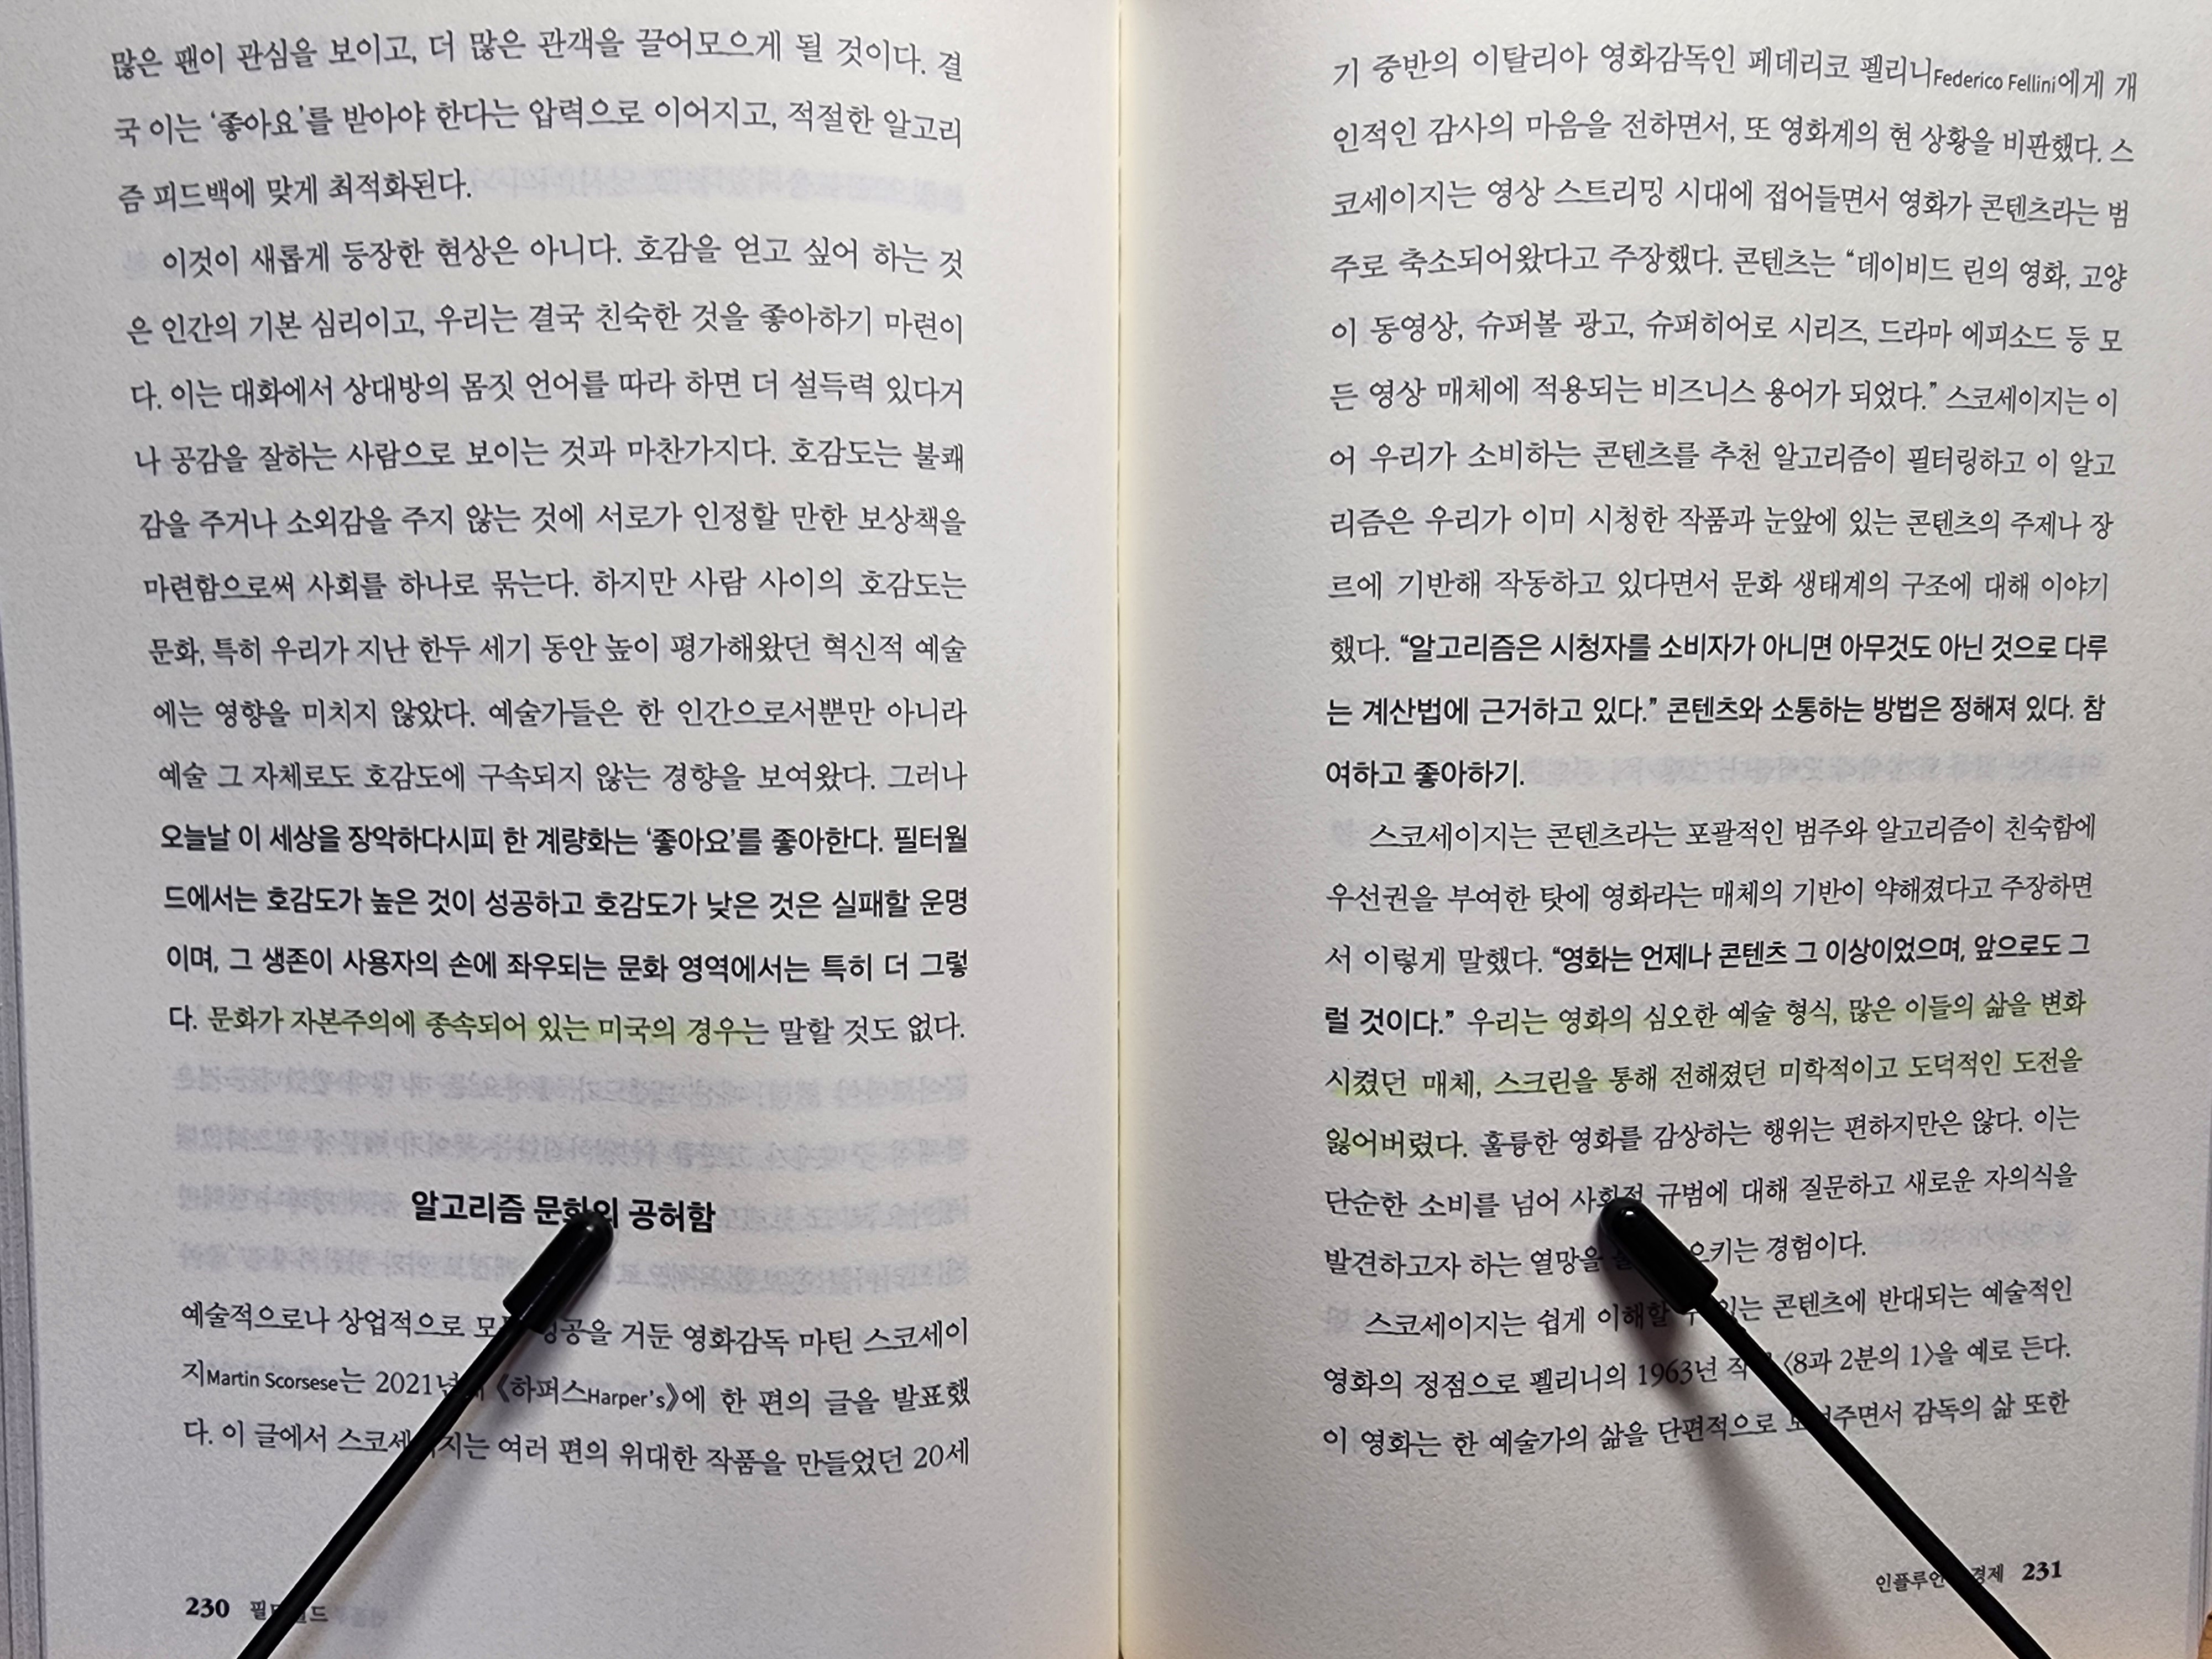 많은 팬이 관심을 보이고, 더 많은 관객을 끌어모으게 될 것이다. 결
국 이는 ‘좋아요’를 받아야 한다는 압력으로 이어지고, 적절한 알고리
즘 피드백에 맞게 최적화된다.
이것이 새롭게 등장한 현상은 아니다. 호감을 얻고 싶어 하는 것
은 인간의 기본 심리이고, 우리는 결국 친숙한 것을 좋아하기 마련이
다. 이는 대화에서 상대방의 몸짓 언어를 따라 하면 더 설득력 있다거
나 공감을 잘하는 사람으로 보이는 것과 마찬가지다. 호감도는 불쾌
감을 주거나 소외감을 주지 않는 것에 서로가 인정할 만한 보상책을
마련함으로써 사회를 하나로 묶는다. 하지만 사람 사이의 호감도는
문화, 특히 우리가 지난 한두 세기 동안 높이 평가해왔던 혁신적 예술
에는 영향을 미치지 않았다. 예술가들은 한 인간으로서뿐만 아니라
예술 그 자체로도 호감도에 구속되지 않는 경향을 보여왔다. 그러나
오늘날 이 세상을 장악하다시피 한 계량화는 ‘좋아요’를 좋아한다. 필터월
드에서는 호감도가 높은 것이 성공하고 호감도가 낮은 것은 실패할 운명
이며, 그 생존이 사용자의 손에 좌우되는 문화 영역에서는 특히 더 그렇
다. 문화가 자본주의에 종속되어 있는 미국의 경우는 말할 것도 없다.
알고리즘 문화의 공허함
예술적으로나 상업적으로 성공을 거둔 영화감독 마틴 스코세이
지Martin Scorsese는 2021년 《하퍼스Harper's》에 한 편의 글을 발표했
다. 이 글에서 스코세이지는 여러 편의 위대한 작품을 만들었던 20세
230
기 중반의 이탈리아 영화감독인 페데리코 펠리니Federico Fellini에게 개
인적인 감사의 마음을 전하면서, 또 영화계의 현 상황을 비판했다. 스
코세이지는 영상 스트리밍 시대에 접어들면서 영화가 콘텐츠라는 범
주로 축소되어왔다고 주장했다. 콘텐츠는 “데이비드 린의 영화, 고양
이 동영상, 슈퍼볼 광고, 슈퍼히어로 시리즈, 드라마 에피소드 등 모
든 영상 매체에 적용되는 비즈니스 용어가 되었다.” 스코세이지는 이
어 우리가 소비하는 콘텐츠를 추천 알고리즘이 필터링하고 이 알고
리즘은 우리가 이미 시청한 작품과 눈앞에 있는 콘텐츠의 주제나 장
르에 기반해 작동하고 있다면서 문화 생태계의 구조에 대해 이야기
했다. “알고리즘은 시청자를 소비자가 아니면 아무것도 아닌 것으로 다루
는 계산법에 근거하고 있다.” 콘텐츠와 소통하는 방법은 정해져 있다. 참
여하고 좋아하기.
스코세이지는 콘텐츠라는 포괄적인 범주와 알고리즘이 친숙함에
우선권을 부여한 탓에 영화라는 매체의 기반이 약해졌다고 주장하면
서 이렇게 말했다. “영화는 언제나 콘텐츠 그 이상이었으며, 앞으로도 그
럴 것이다.” 우리는 영화의 심오한 예술 형식, 많은 이들의 삶을 변화
시켰던 매체, 스크린을 통해 전해졌던 미학적이고 도덕적인 도전을
잃어버렸다. 훌륭한 영화를 감상하는 행위는 편하지만은 않다. 이는
단순한 소비를 넘어 사회적 규범에 대해 질문하고 새로운 자의식을
발견하고자 하는 열망을 경험이다.
스코세이지는 쉽게 이해할 수 있는 콘텐츠에 반대되는 예술적인
영화의 정점으로 펠리니의 1963년 〈8과 2분의 1〉을 예로 든다.
이 영화는 한 예술가의 삶을 단편적으로 보여주면서 감독의 삶 또한
경제 231